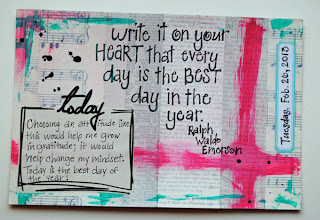 write it on your
HEART that every
day is the BEST
day in the
year.
Ralph
Waldo
Emerson
Tuesday, Feb. 26, 2013
today
Choosing an attitude like
this would help me grow
in gratitude; it would
help change my mindset.
Today is the best day of
the year!